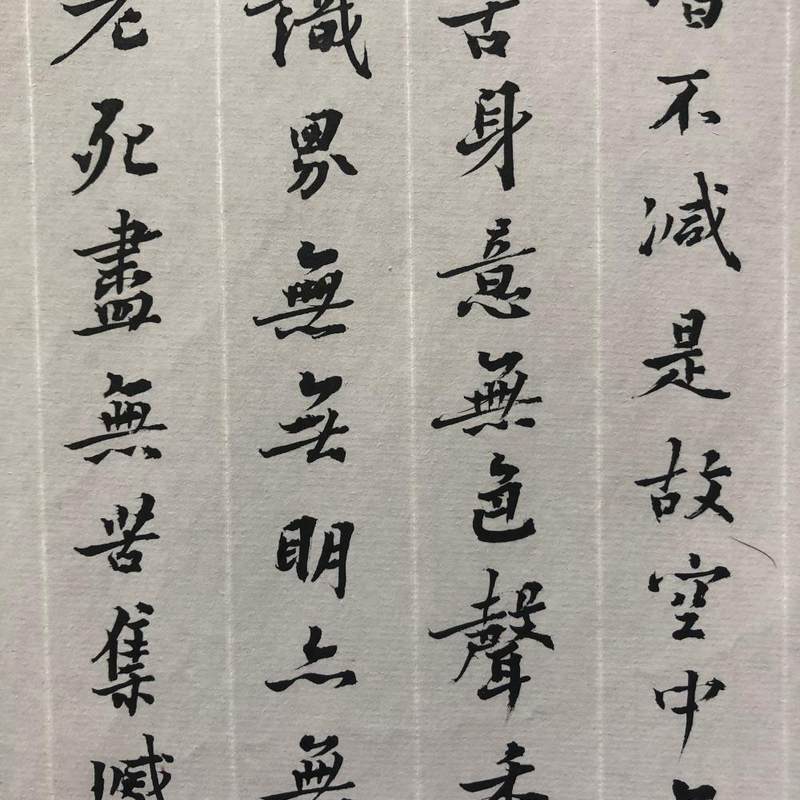 不減是故空中
舌身意無色聲香
識界無無明亦無
老死盡無苦集滅